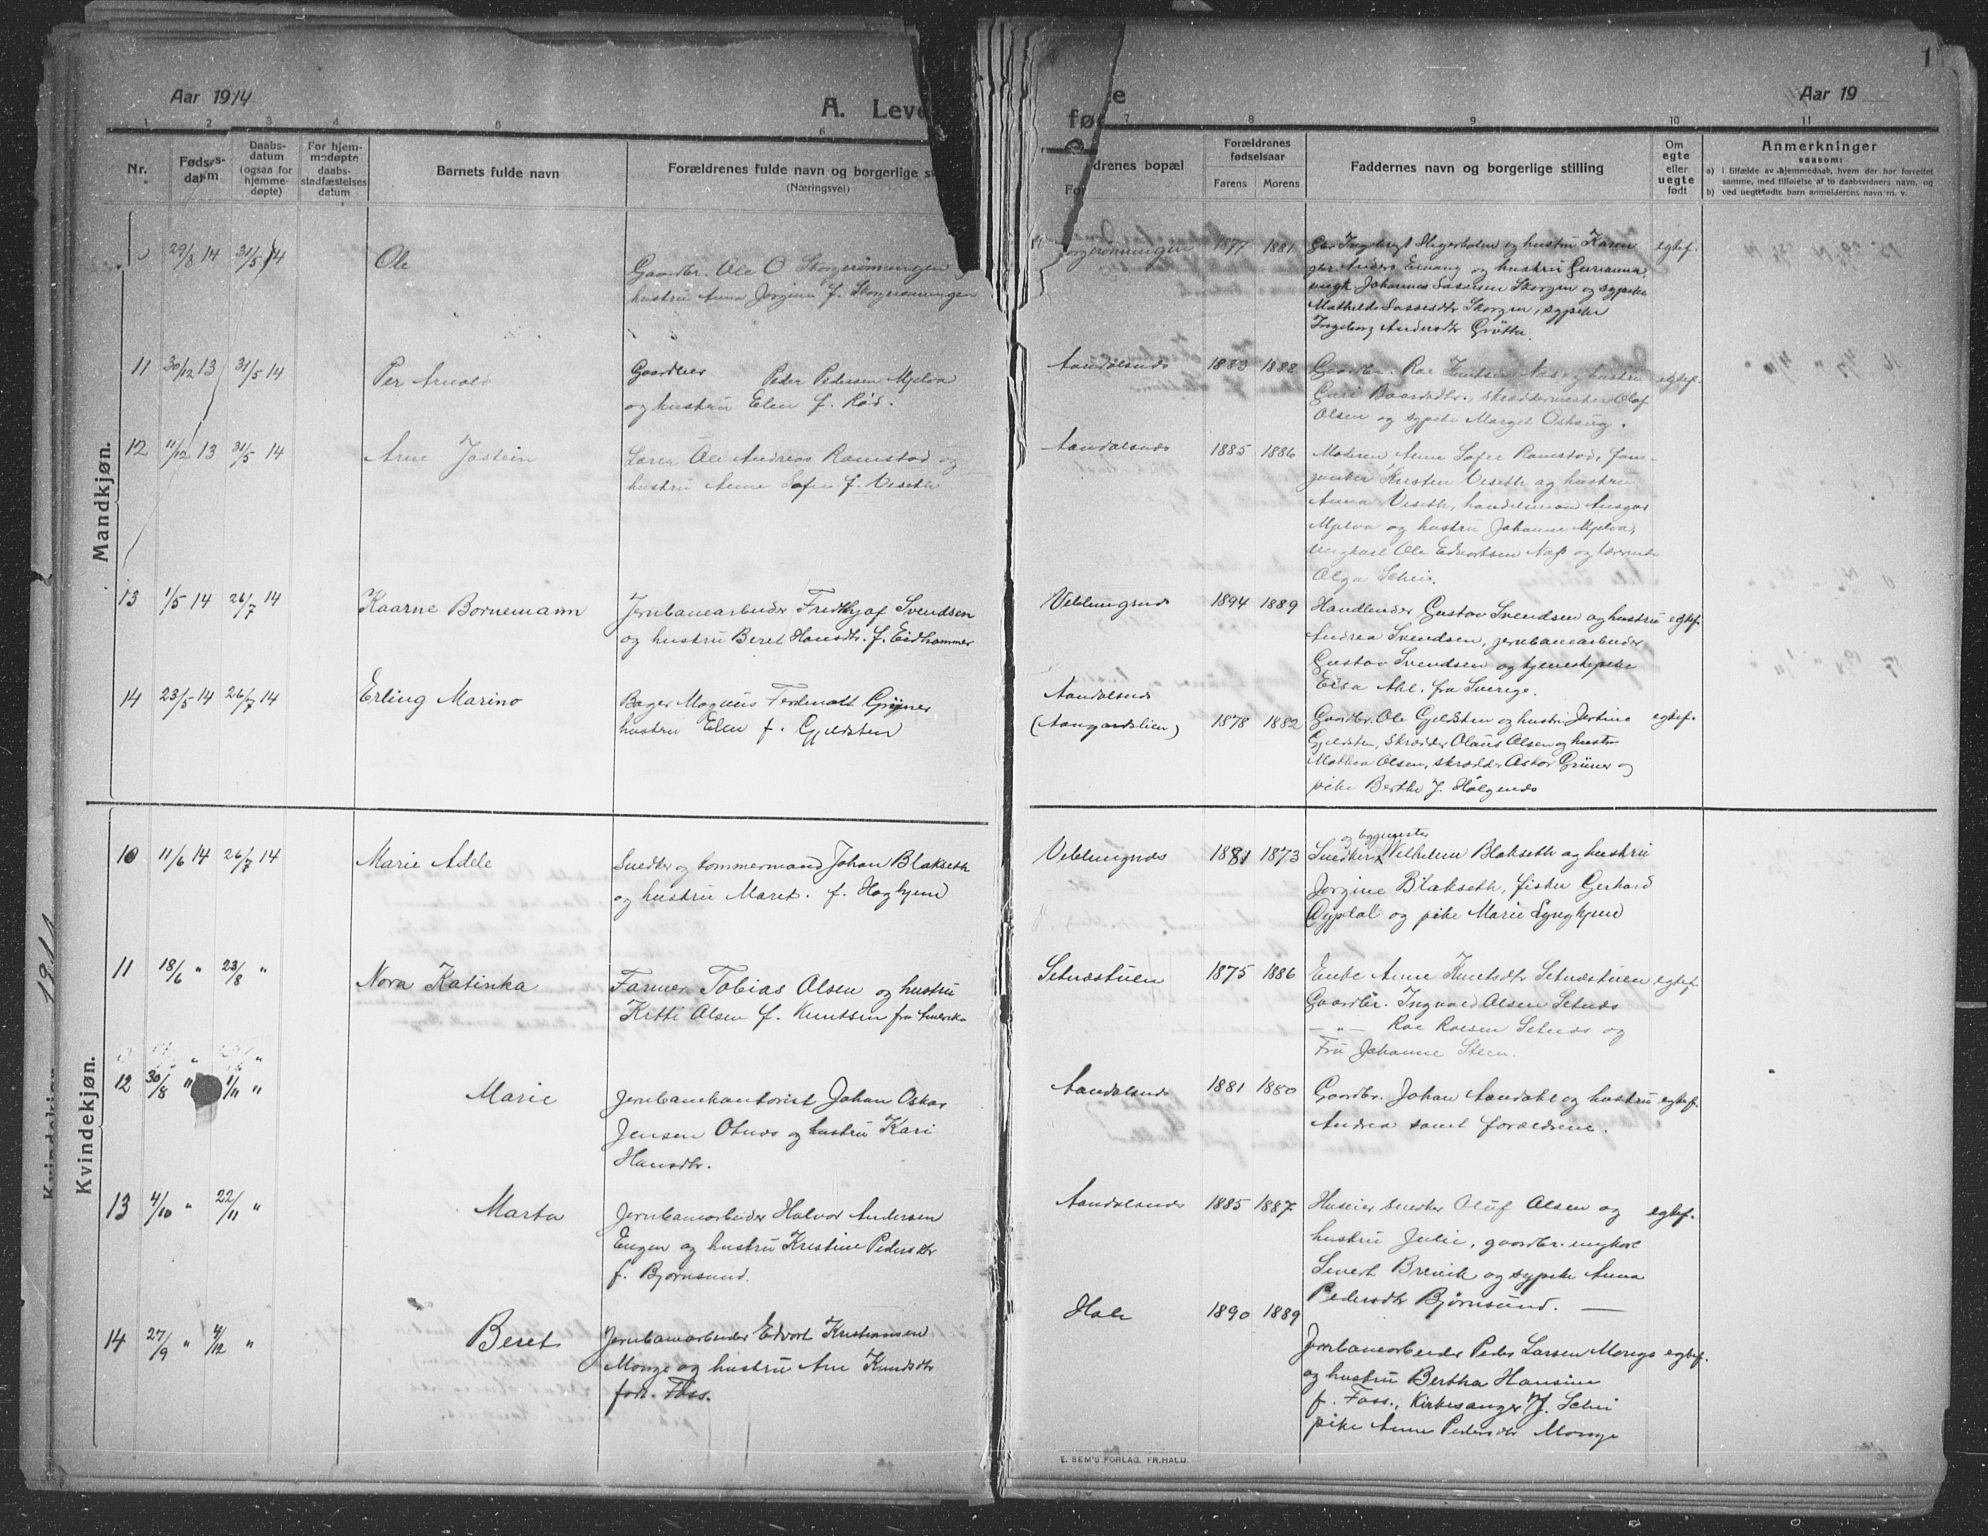 1
Aar 1914
A. Leve
te
fød
e
Aar 19
1 2 3 4 5 6 7 8 9 10 11
Nr.
Fødsels-
datum
Daabs-
datum
(ogsaa for
hjemme-
døpte)
For hjem-
medøpte
daabs-
stadfæstelses
datum
Barnets fulde navn
Forældrenes fulde navn og borgerlige s
(Næringsvei)
For drenes bopæl
Forældrenes
fødselsaar
Farens Morens
Faddernes navn og borgerlige stilling
Om
egte
eller
uegte
født
Anmerkninger
saasom:
a) i tilfælde av hjemmedaab, hvem der har forrettet
samme, med tilføielse af to daabsvidners navn, og
b) ved uegtefødte barn anmelderens navn m. v.
Mandkjøn.
29/3 14 31/5 14 Ole
Gaardbr. Ole O Skorgerømningen
hustru Anna Jørgine f. Skorgerømningen
1877 1881
Gbr Ingebrigt Hagerholm og hustru Karen
gbr Anders Ernang og hustru Gurianna,
ungk Johannes Lassesen Skorgen og sypike
Mathilde Lassesdtr Skorgen, sypike
Ingeborg Andersdtr Grøtta.
egtef.
11 30/12 13 31/5 14 Per Arnold
Gaardbr Peder Pedersen Mjelva
og hustru Elen f. Rød.
Aandalsnæs 1883 1888
Gaardbr. Roe Knutsen Næs og hustru
Guri Baardsdtr., skræddermester Olaf
Olsen og sypike Marget Oshaug.
egtef.
12 11/12 13 31/5 14 Arne Jostein
Lærer Ole Andreas Ramstad og
hustru Anne Sofie f. Viseth
Aandalsnæs 1885 1886
Moderen Anne Sofie Ramstad,
Kristen Viseth og hustru
Anna Viseth, handelsmand Ansgar
Mjelva og hustru Johanne Mjelva,
ungkarl Ole Edvartsen Næs og
Olga Schei.
13 1/5 14 26/7 14 Kaarne Bornemann
Jernbanearbeider Fredthjof Svendsen
og hustru Beret Hansdtr. f. Eidhammer
Veblungnæs 1894 1889
Handlender Gustav Svendsen og hustru
Andrea Svendsen, jernbanearbeider
Gustav Svendsen og tjenestepike
Elsa Ahl. fra Sverige.
egtef.
14 23/5 14 26/7 14 Erling Marino
Bager Magnus Ferdenatt Grüner
hustru Elen f. Gjeldsten
Aandalsnæs
(Aangardslien) 1878 1882
Gaardbr. Ole Gjeldsten og hustru Jertine
Gjeldsten, skrædder Olaus Olsen og hustru
Mathea Olsen, skrædder Oskar Grüner og
pike Berthe J. Holgenæs
egtef.
Kvindekjøn.
10 11/6 14 26/7 14 Marie Adele
Snedker og tømmermand Johan Blakseth
og hustru Maret. f. Hagkjem
Veblungnæs 1881 1873
og bygmester
Snedker Vilhelm Blakseth og hustru
Jørgine Blakseth, fisker Gerhard
og pike Marie Lyngkjem
11 18/6 " 23/8 " Nora Katinka
Farmer Tobias Olsen og hustru
Kitti Olsen f. Knutsen fra Amerika
Setnæstuen 1875 1886
Enke Anne Knutsdtr Setnæstuen
Gaardbr. Ingvald Olsen Setnæs
— " — Roe Roesen Setnæs og
Fru Johanne Steen.
egtef.
12 30/8 " 1/11 " Marie
Jernbanekontorist Johan Oskar
Jensen Otnæs og hustru Kari
Hansdtr.
Aandalsnæs 1881 1880
Gaardbr. Johan Aandahl og hustru
Andrea samt forældrene.
egtef.
13 4/10 " 22/11 " Marta
Jernbanearbeider Halvor Andersen
Engen og hustru Kristine Pedersdtr
f. Bjørnsund.
Aandalsnæs 1885 1887
Huseier snedker Oluf Olsen og
hustru Julie, gaardbr. ungkarl
Severt Brevik og sypike Anna
Pedersdtr Bjørnsund. —
egtef.
14 27/9 " 4/12 " Beret
Jernbanearbeider Edvart Kristiansen
Monge og hustru Ane Knudsdtr
født Foss.
Hole 1890 1889
Jernbanearbeider Peder Larsen Monge
og hustru Bertha Hansine
f. Foss., Kirkesanger J. Schei
pike Anne Pedersdtr Monge
egtef.
E. SEM'S FORLAG, FR.HALD.